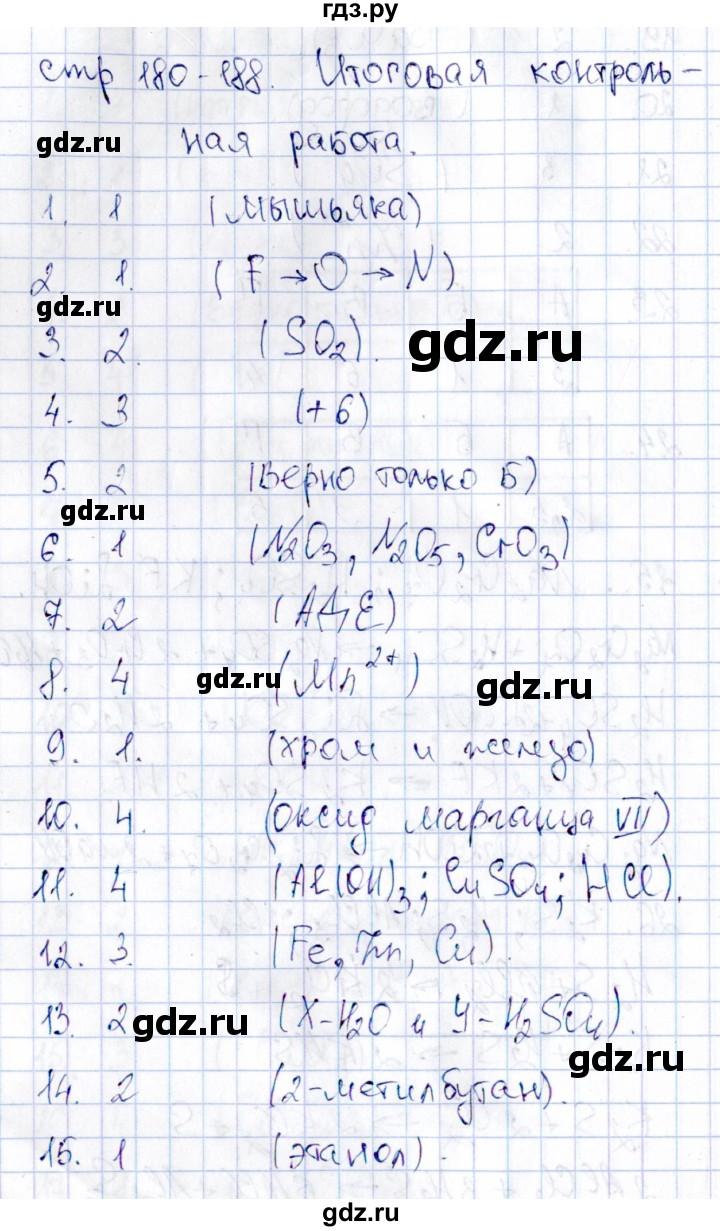 гдз.ру
стр 180-188. Итоговая контроль-
gdz.ru ная работа.
1. 1 (мышьяка)
2. 1. (F → O → N)
gdz.ru
3. 2. (SO2). gdz.ru
4. 3 (+6)
5. 2 (Верно только Б)
gdz.ru
6. 1 (N2O3, N2O5, CrO3)
7. 2 (АДЕ)
8. 4 gdz.ru (Mn2+) gdz.ru
9. 1. (хром и железо)
10. 4. (оксид марганца VII)
11. 4 (Al(OH)3; CuSO4; HCl).
12. 3. (Fe, Zn, Cu).
13. 2 gdz.ru (X-H2O и Y-H2SO4).
gdz.ru
14. 2 (2-метилбутан).
15. 1 (этанол).
gdz.ru